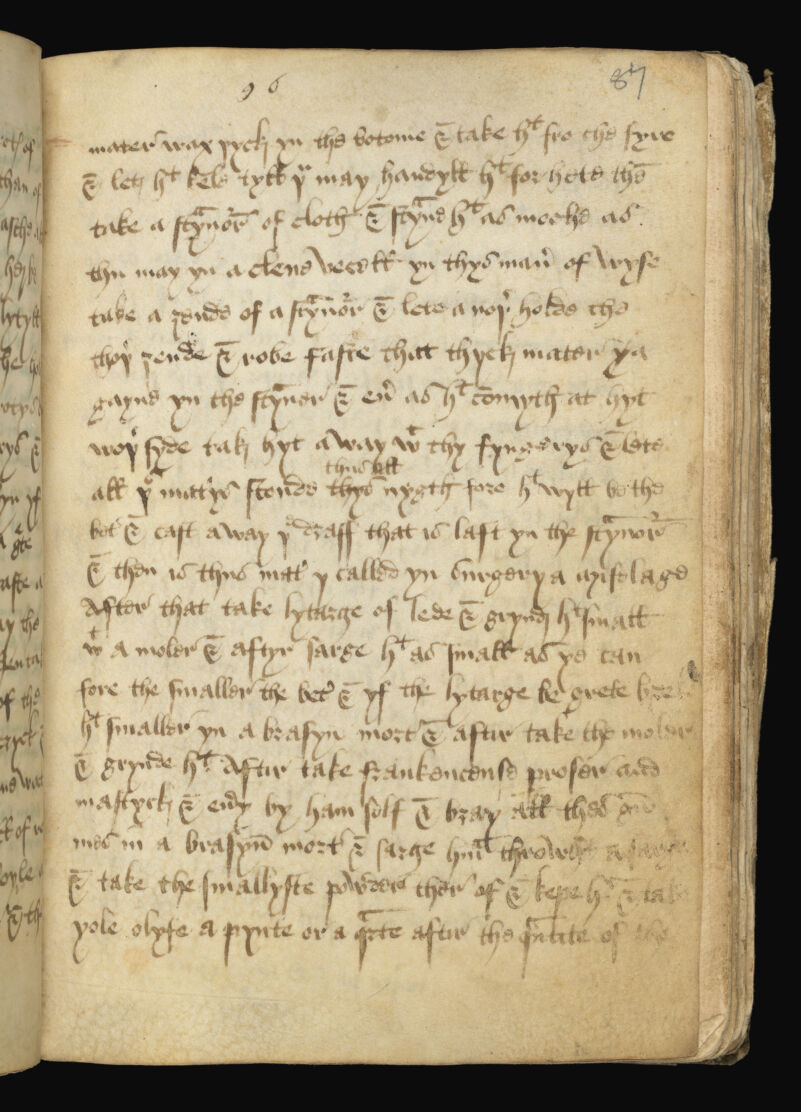 96
87
mater wax yyck yn the botome & take ht fro the fyre
& let ht kele tyll yu may handyll ht for hete the
take a straynor of cloth & strayne ht as moche as
thu may yn a clene vecell yn thys maner of wyse
take a zende of a straynor & lete a noyr holde the
thoyr zende & robe faste that thyck mater ya
gayns yn the straynor & eu as ht comyth at hyt
noyr syde tak hyt a way wt thy fyngerys & lete
thus all
all yr matrys stonde thys nygth fore ht wyll be the
bet & cast a way ye draff that is laft yn the straynor
& then is thus mat y called yn surgery a
After that take lytarge of lede & grynd ht small
wt a moler & aftyr sarge ht as small as ye can
fore the smaller the bet & yf the lytarge be grete
ht smaller yn a brasyn mort & aftur take the moler
& grynde ht Aftur take frankencense proser and
mastyck & eudy by ham self & bray all thes
mes in a brasyn mort & sarge throwgh a
& take the smallyste powder ther of & kepe ht & take
yole olyfe a pynte or a qrte aftur the qntite of the